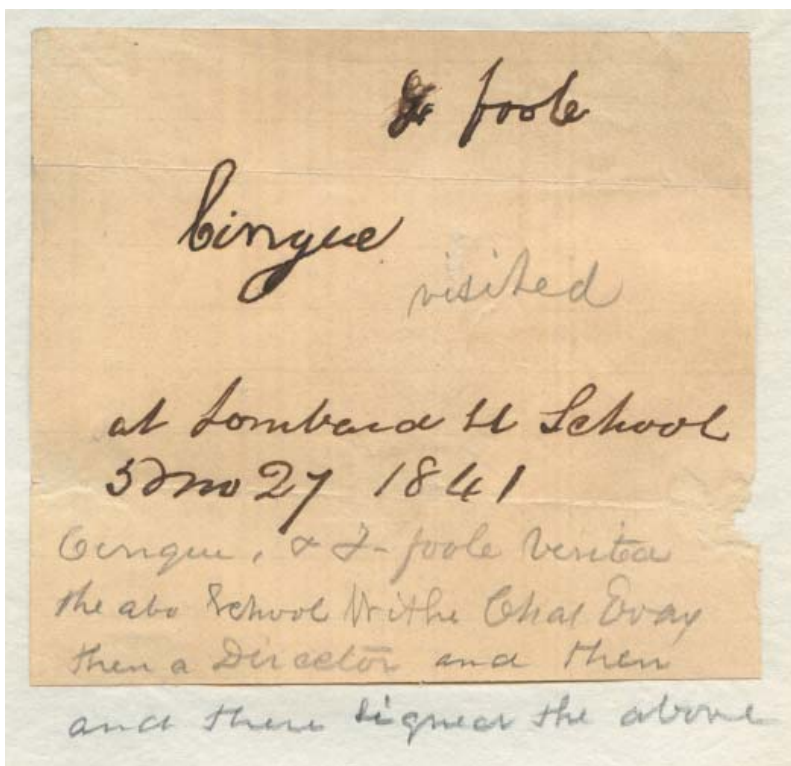 foole
Cinque
visited
at Lombard St School
mo 27 1841
Cinque, & F- foole Visited
the abo School Withe Chas
then a Director and then
and there signed the above